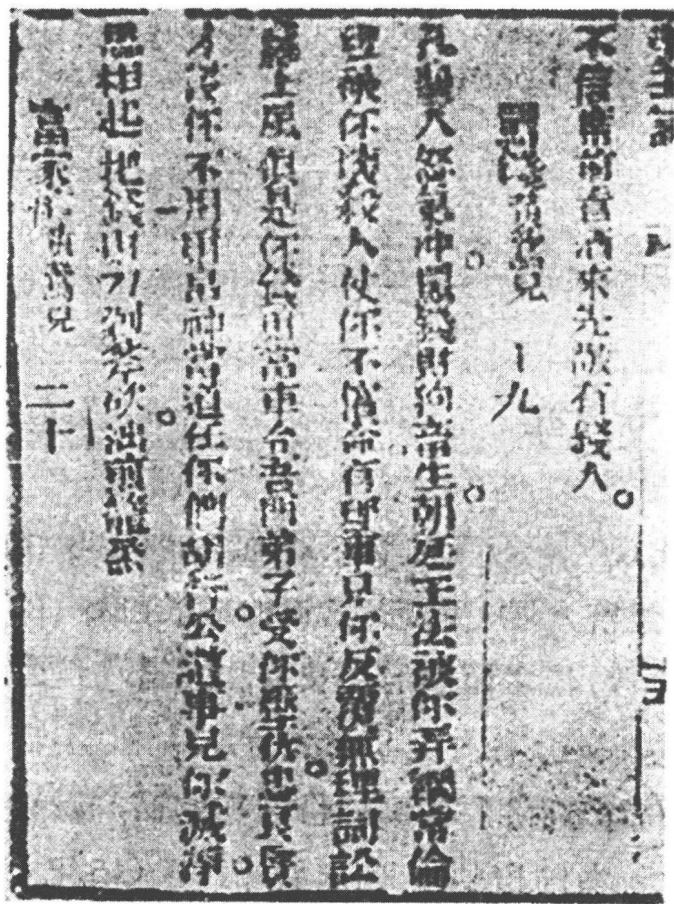 不信席前看酒來先敬有錢人
黃鶯兒 十九
孔聖人怒氣冲罵錢財狗畜生朝廷王法被你弄綱常倫
理被你壞殺人仗你不償命有理事兒你反覆無理詞訟
贏上風俱是你錢財當車令吾門弟子受你壓伏忠良賢
才沒你不用財帛神當道任你們胡行公道事兒你滅淨
思想起把錢財刀剁斧砍油煎籠蒸
富 黃鶯兒 二十